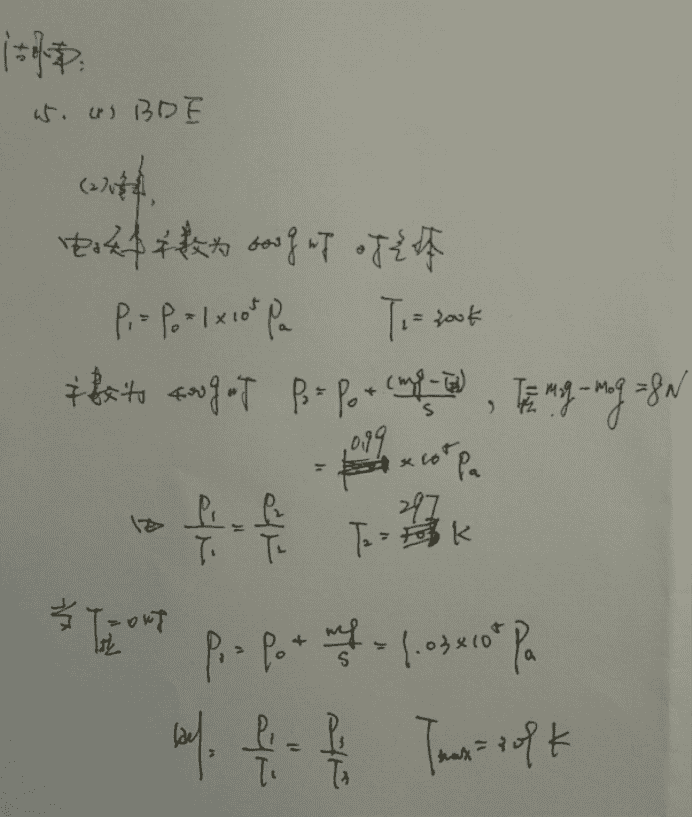 答案:
15. (1) BDE
(2)
电子天平示数为 600g 时 对气体
P₁ = P₀ = 1×10⁵ Pa T₁ = 300K
示数为 400g 时 P₂ = P₀ + (mg - T拉)/S , T拉 = m₁g - m₀g = 8N
= 0.99 ×10⁵ Pa
由 P₁/T₁ = P₂/T₂ T₂ = 297 K
当 T拉 = 0 时 P₃ = P₀ + mg/S = 1.03×10⁵ Pa
P₁/T₁ = P₃/T₃ Tmax = 309 K